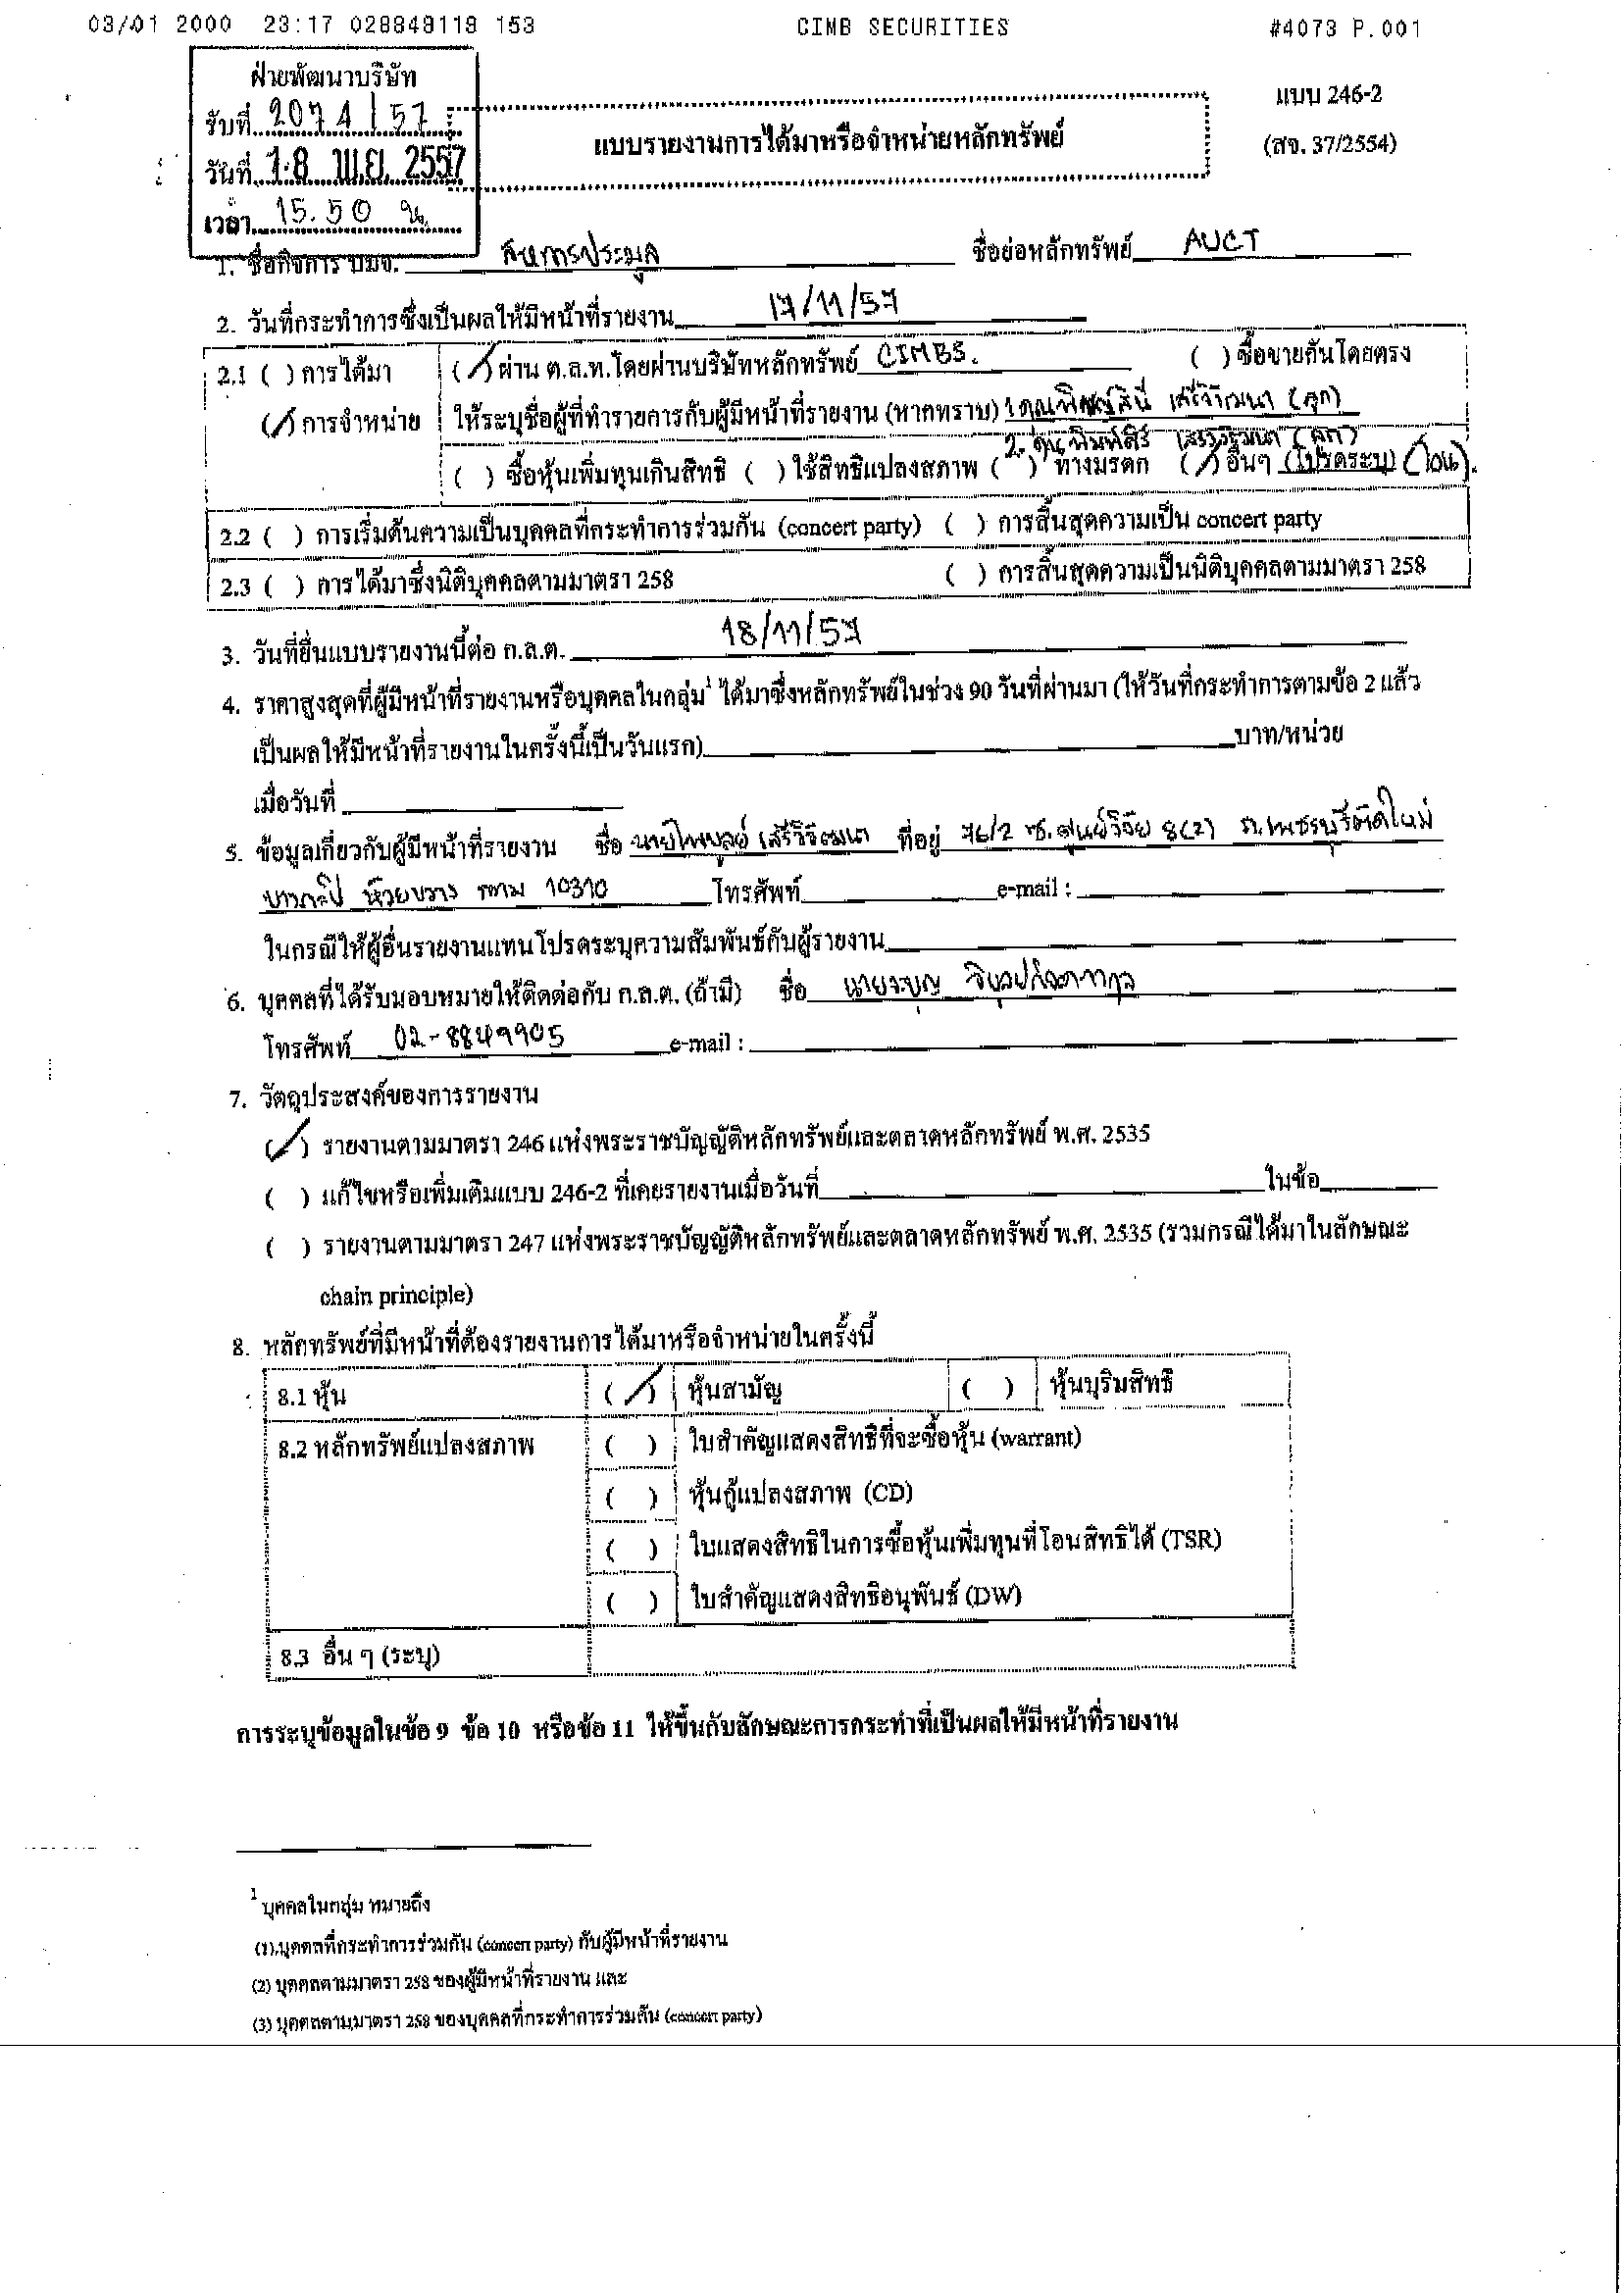 03/01 2000 23:17 028848118 153 CIMB SECURITIES #4073 P.001
ฝ่ายพัฒนาบริษัท
รับที่ 2074/57
วันที่ 18 พ.ย. 2557
เวลา 15.50 น.
แบบ 246-2
(สจ. 37/2554)
แบบรายงานการได้มาหรือจำหน่ายหลักทรัพย์
1. ชื่อกิจการ บมจ. สหการประมูล ชื่อย่อหลักทรัพย์ AUCT
2. วันที่กระทำการซึ่งเป็นผลให้มีหน้าที่รายงาน 17/11/57
2.1 ( ) การได้มา (/) ผ่าน ต.ล.ท.โดยผ่านบริษัทหลักทรัพย์ CIMBS. ( ) ซื้อขายกันโดยตรง
(/) การจำหน่าย ให้ระบุชื่อผู้ที่ทำรายการกับผู้มีหน้าที่รายงาน (หากทราบ) 1. คุณพิชญ์สินี เสรีวิวัฒนา (ลูก)
2. คุณพิมพ์สิริ เสรีวิวัฒนา (ลูก)
( ) ซื้อหุ้นเพิ่มทุนเกินสิทธิ ( ) ใช้สิทธิแปลงสภาพ ( ) ทางมรดก (/) อื่นๆ (โปรดระบุ) (โอน).
2.2 ( ) การเริ่มต้นความเป็นบุคคลที่กระทำการร่วมกัน (concert party) ( ) การสิ้นสุดความเป็น concert party
2.3 ( ) การได้มาซึ่งนิติบุคคลตามมาตรา 258 ( ) การสิ้นสุดความเป็นนิติบุคคลตามมาตรา 258
3. วันที่ยื่นแบบรายงานนี้ต่อ ก.ล.ต. 18/11/57
4. ราคาสูงสุดที่ผู้มีหน้าที่รายงานหรือบุคคลในกลุ่ม1 ได้มาซึ่งหลักทรัพย์ในช่วง 90 วันที่ผ่านมา (ให้วันที่กระทำการตามข้อ 2 แล้ว
เป็นผลให้มีหน้าที่รายงานในครั้งนี้เป็นวันแรก) บาท/หน่วย
เมื่อวันที่
5. ข้อมูลเกี่ยวกับผู้มีหน้าที่รายงาน ชื่อ นายไพบูลย์ เสรีวิวัฒนา ที่อยู่ 76/2 ซ.ศูนย์วิจัย 8(2) ถ.เพชรบุรีตัดใหม่
บางกะปิ ห้วยขวาง กทม 10310 โทรศัพท์ e-mail :
ในกรณีให้ผู้อื่นรายงานแทนโปรดระบุความสัมพันธ์กับผู้รายงาน
6. บุคคลที่ได้รับมอบหมายให้ติดต่อกับ ก.ล.ต. (ถ้ามี) ชื่อ
โทรศัพท์ 02-8849905 e-mail :
7. วัตถุประสงค์ของการรายงาน
(/) รายงานตามมาตรา 246 แห่งพระราชบัญญัติหลักทรัพย์และตลาดหลักทรัพย์ พ.ศ. 2535
( ) แก้ไขหรือเพิ่มเติมแบบ 246-2 ที่เคยรายงานเมื่อวันที่ ในข้อ
( ) รายงานตามมาตรา 247 แห่งพระราชบัญญัติหลักทรัพย์และตลาดหลักทรัพย์ พ.ศ. 2535 (รวมกรณีได้มาในลักษณะ
chain principle)
8. หลักทรัพย์ที่มีหน้าที่ต้องรายงานการได้มาหรือจำหน่ายในครั้งนี้
8.1 หุ้น (/) หุ้นสามัญ ( ) หุ้นบุริมสิทธิ
8.2 หลักทรัพย์แปลงสภาพ ( ) ใบสำคัญแสดงสิทธิที่จะซื้อหุ้น (warrant)
( ) หุ้นกู้แปลงสภาพ (CD)
( ) ใบแสดงสิทธิในการซื้อหุ้นเพิ่มทุนที่โอนสิทธิได้ (TSR)
( ) ใบสำคัญแสดงสิทธิอนุพันธ์ (DW)
8.3 อื่น ๆ (ระบุ)
การระบุข้อมูลในข้อ 9 ข้อ 10 หรือข้อ 11 ให้ขึ้นกับลักษณะการกระทำที่เป็นผลให้มีหน้าที่รายงาน
1 บุคคลในกลุ่ม หมายถึง
(1) บุคคลที่กระทำการร่วมกัน (concert party) กับผู้มีหน้าที่รายงาน
(2) บุคคลตามมาตรา 258 ของผู้มีหน้าที่รายงาน และ
(3) บุคคลตามมาตรา 258 ของบุคคลที่กระทำการร่วมกัน (concert party)